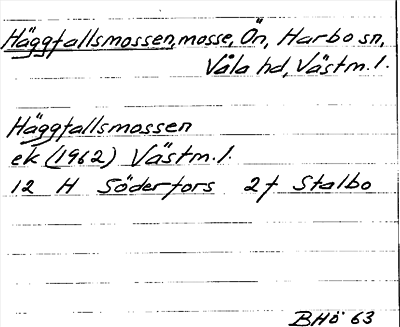 Häggtallsmossen, mosse, Ön, Harbo sn,
Våla hd, Västm. l.
Häggtallsmossen
ek (1962) Västm. l.
12 H Söderfors 2f Stalbo
BHö 63